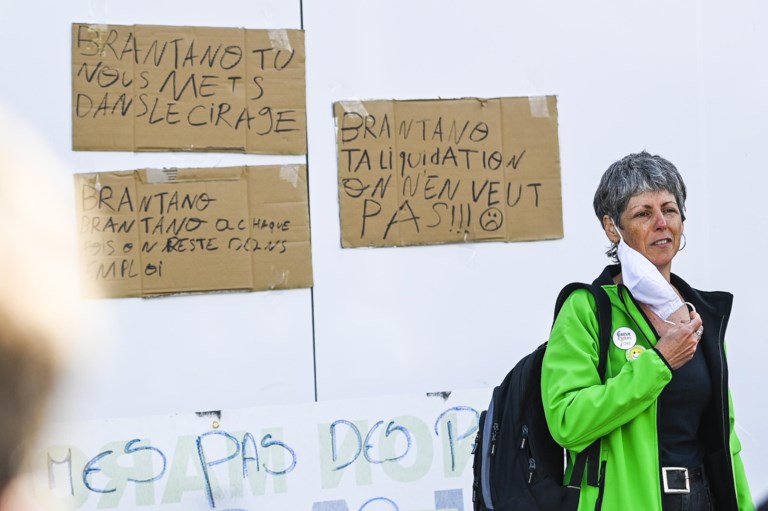 BRANTANO TU
NOUS METS
DANS LE CIRAGE
BRANTANO
TA LIQUIDATION
ON N'EN VEUT
PAS!!!
BRANTANO
BRANTANO A CHAQUE
FOIS ON RESTE SANS
EMPLOI
MES PAS DE P